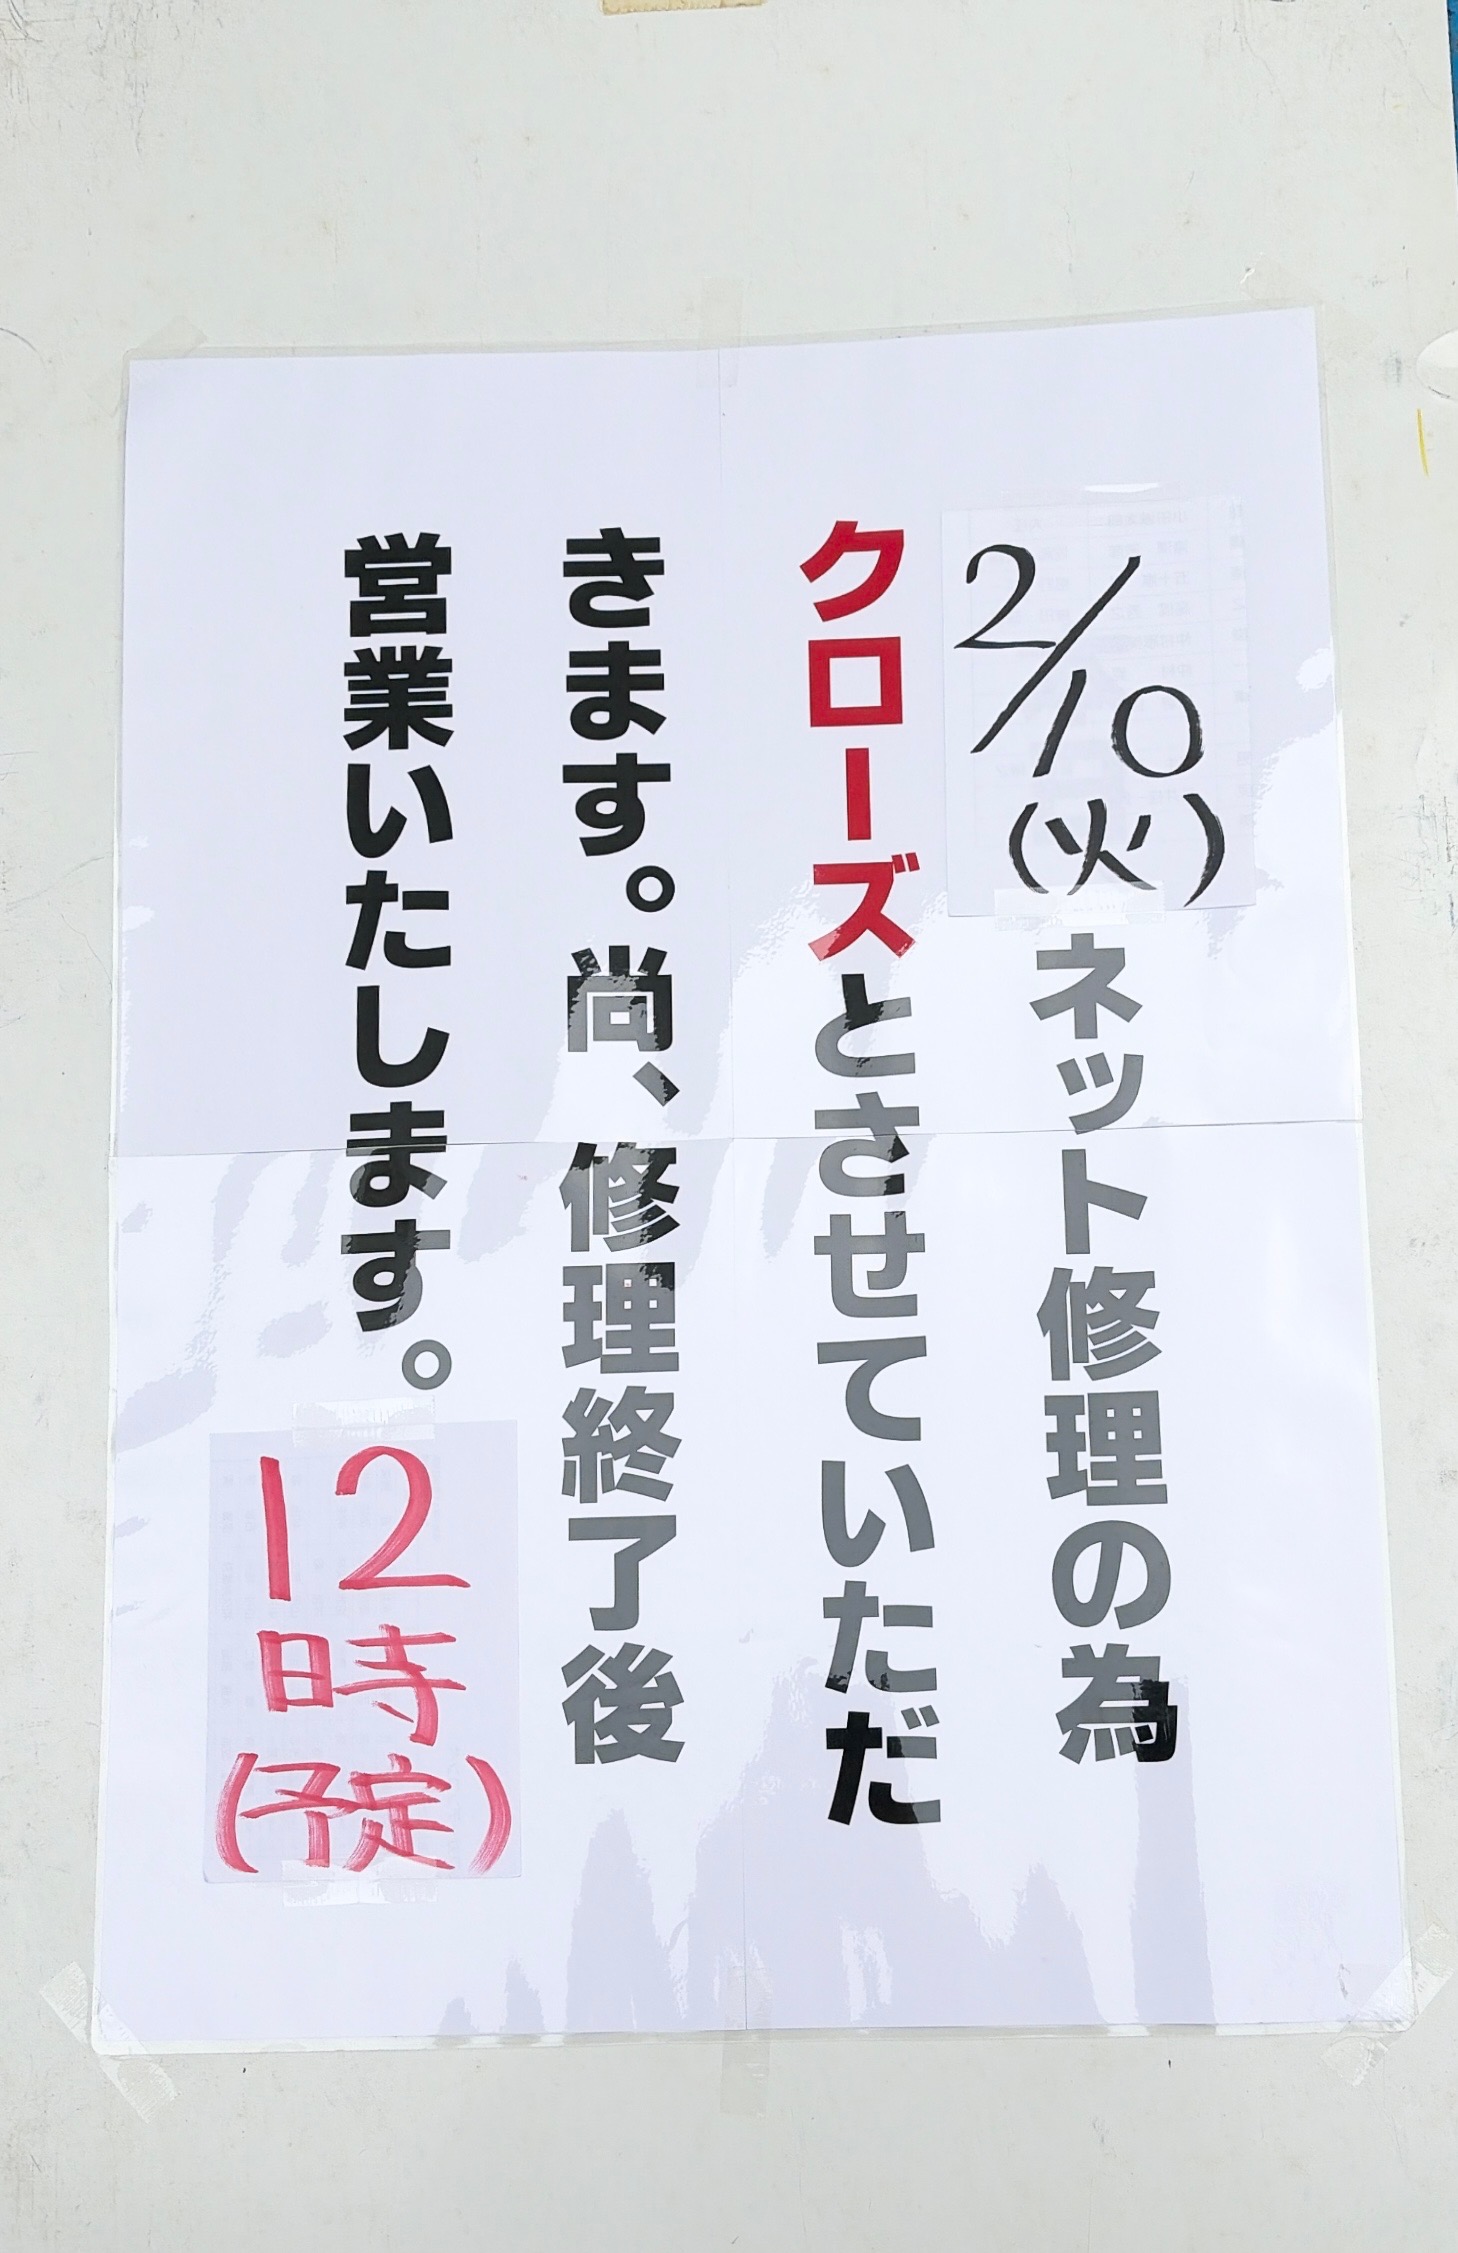 2/10(火)ネット修理の為
クローズとさせていただ
きます。尚、修理終了後
営業いたします。12時(予定)